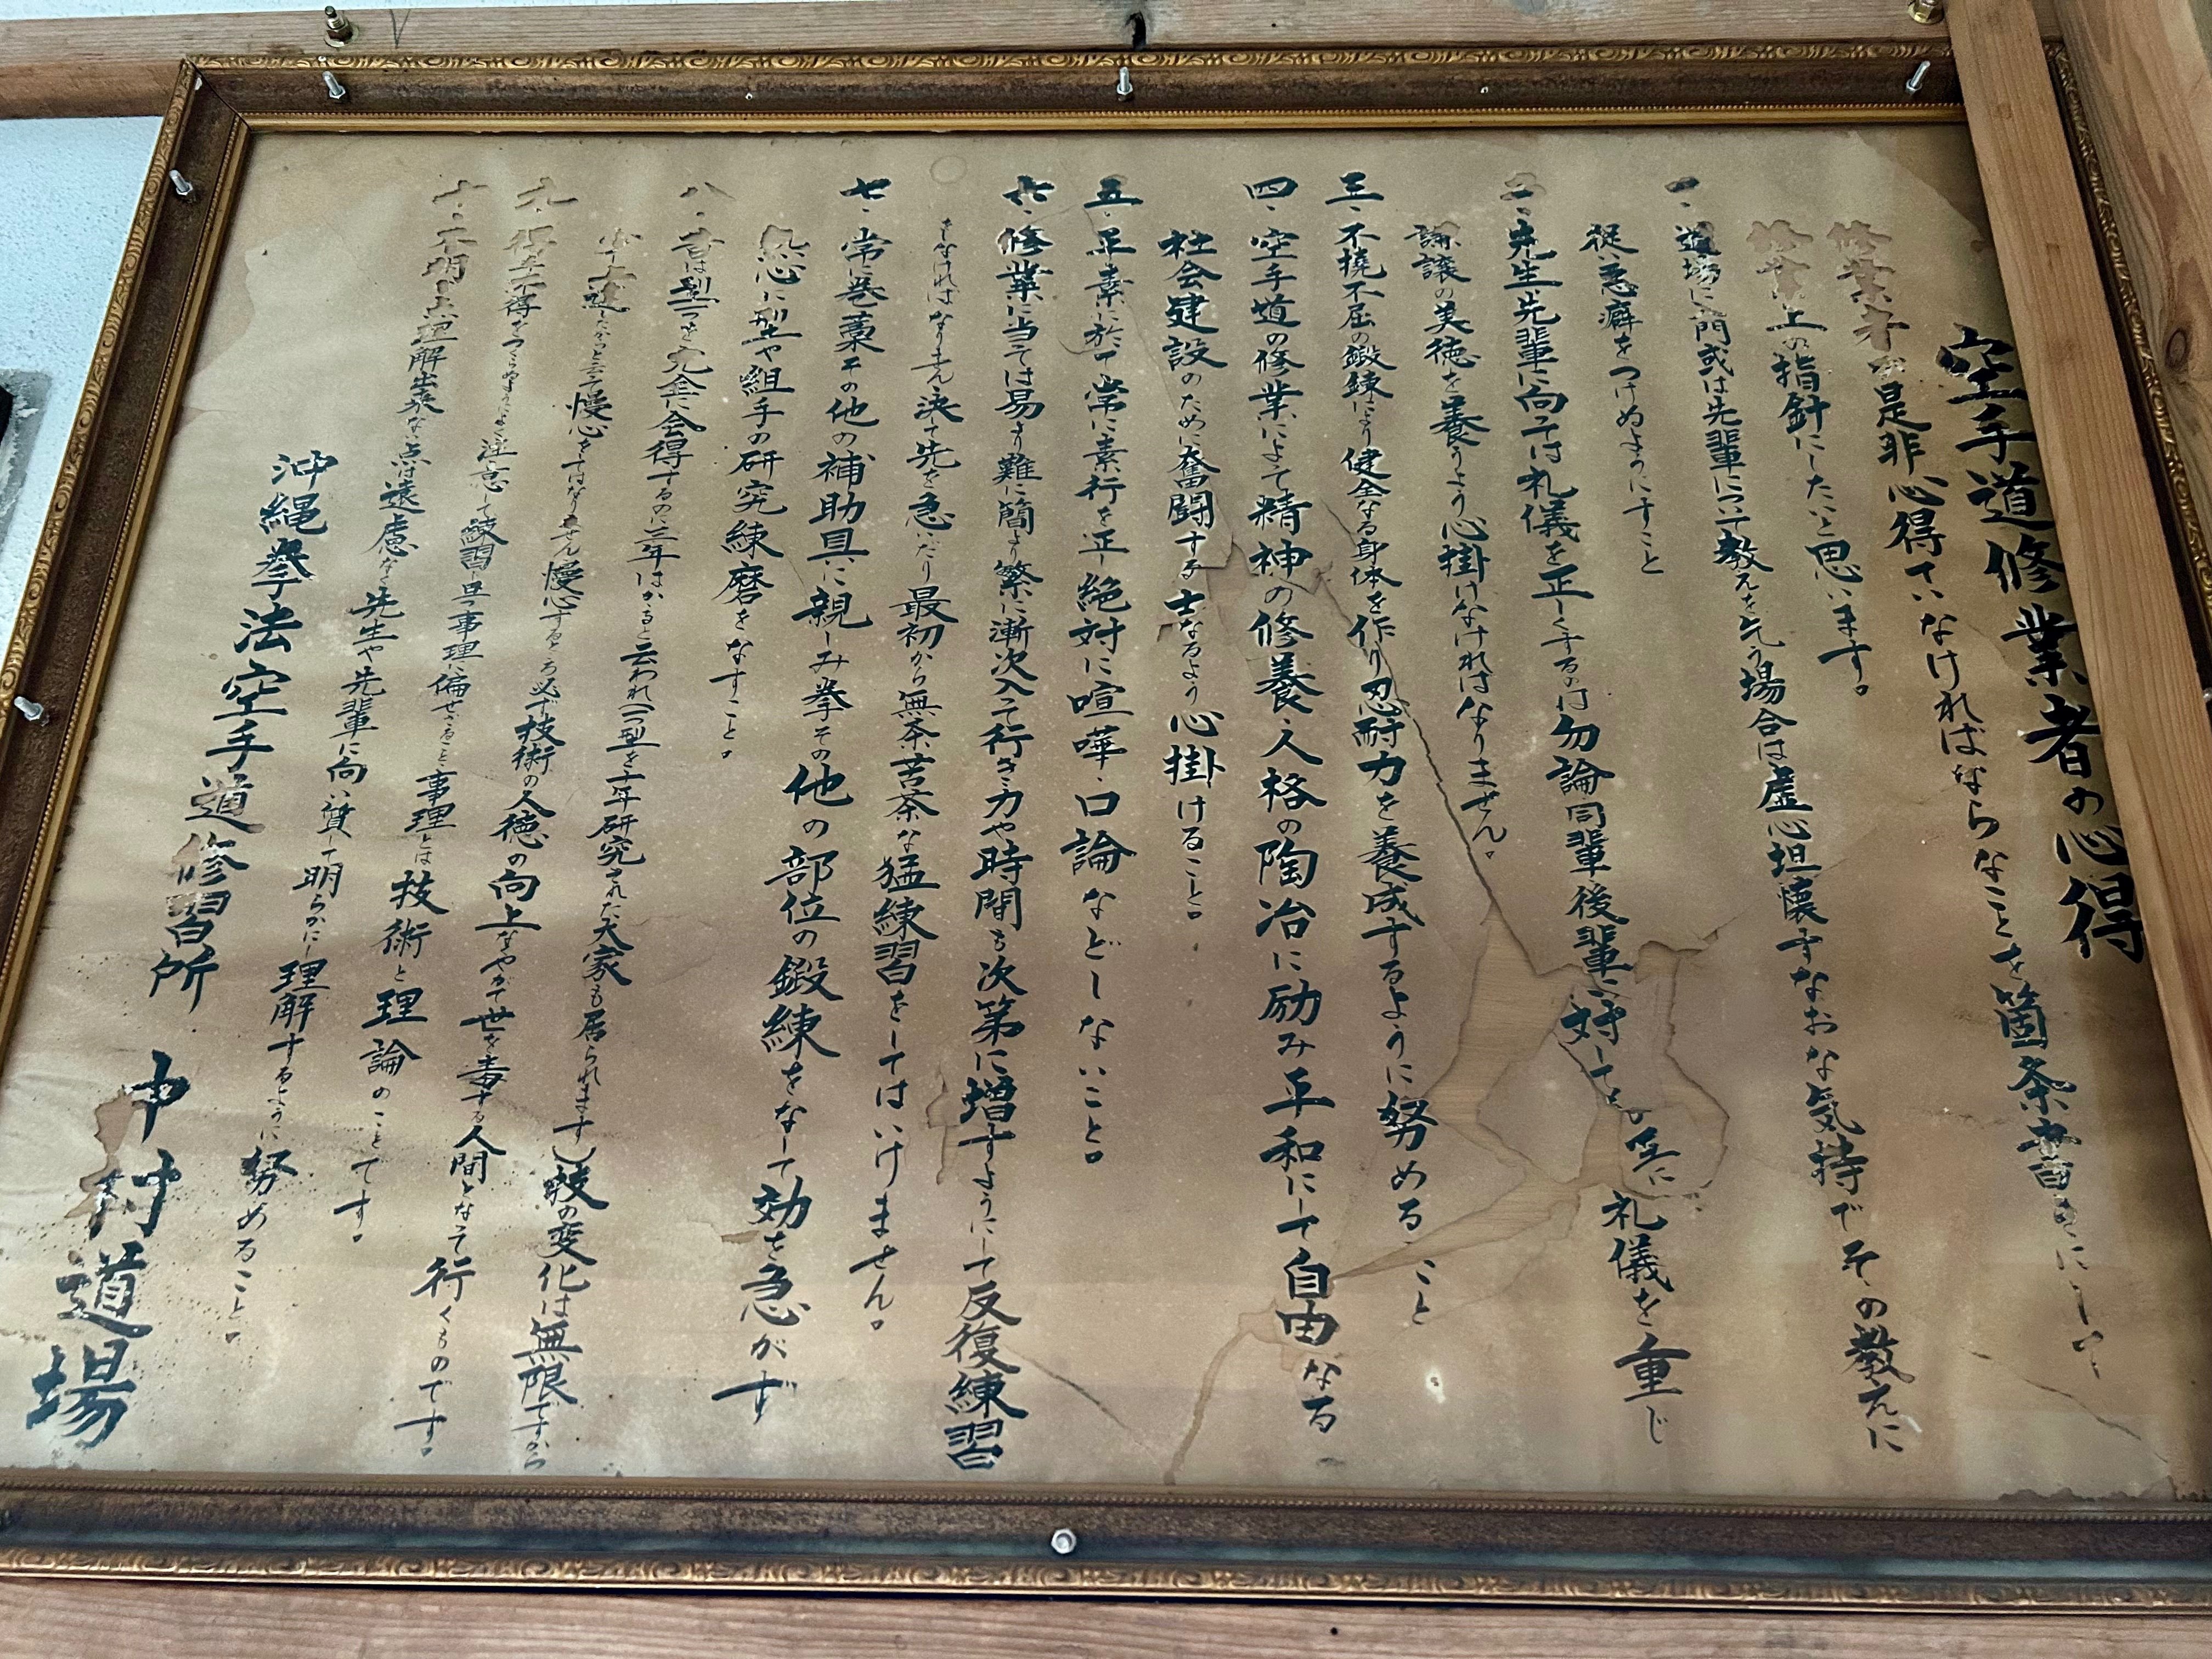 空手道修業者の心得
修業者が是非心得ていなければならなことを箇条書きにして
修業上の指針にしたいと思います。
一、道場に入門或は先輩について教えを乞う場合は虚心坦懐すなおな気持でその教えに
従い悪癖をつけぬようにすること
二、先生先輩に向ては礼儀を正しくするのは勿論同輩後輩に対しても互に礼儀を重じ
謙譲の美徳を養うよう心掛けなければなりません。
三、不撓不屈の鍛錬により健全なる身体を作り忍耐力を養成するように努めること
四、空手道の修業によって精神の修養、人格の陶冶に励み平和にして自由なる
社会建設のために奮闘する士なるよう心掛けること。
五、平素に於て常に素行を正し絶対に喧嘩、口論などしないこと。
六、修業に当ては易より難に簡より繁に漸次入って行き力や時間も次第に増すようにして反復練習
をしなければなりません決て先を急いだり最初から無茶苦茶な猛練習をしてはいけません。
七、常に巻藁その他の補助具に親しみ拳その他の部位の鍛練をなして効を急がず
熱心に型や組手の研究練磨をなすこと。
八、昔は型一つを完全に会得するのに三年はかゝると云われ(一つ型を十年研究された大家も居られます)技の変化は無限ですから
少し上達したからと云って慢心をしてはなりません慢心するもの必ず技術の人徳の向上なくやがて世を毒する人間となって行くものです。
九、得手不得をつくらぬように注意して練習し且つ事理に偏せざること事理とは技術と理論のことです。
十、不明な点理解出来ない点は遠慮なく先生や先輩に向い質して明らかにし理解するように努めること。
沖縄拳法空手道修習所 中村道場